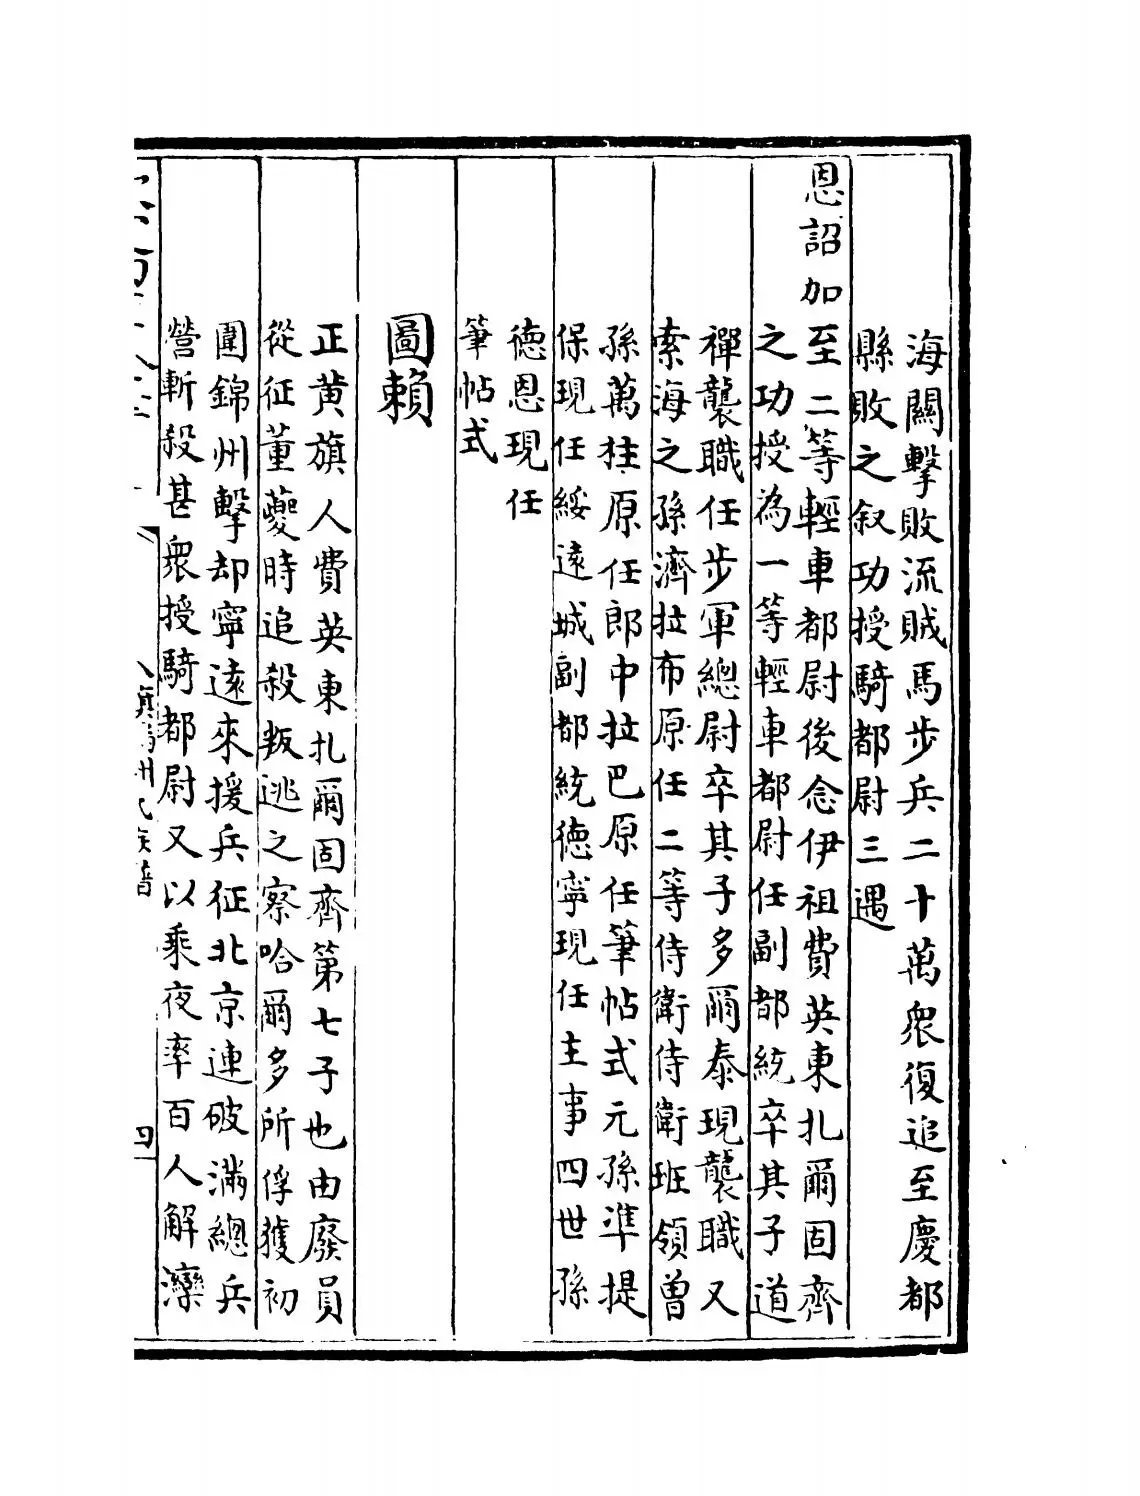 海關擊敗流賊馬步兵二十萬衆復追至慶都
縣敗之叙功授騎都尉三遇
恩詔加至二等輕車都尉後念伊祖費英東扎爾固齊
之功授為一等輕車都尉任副都統卒其子道
禪襲職任步軍總尉卒其子多爾泰現襲職又
索海之孫濟拉布原任二等侍衛侍衛班領曾
孫萬柱原任郎中拉巴原任筆帖式元孫準提
保現任綏遠城副都統德寧現任主事四世孫
德恩現任
筆帖式
圖賴
正黄旗人費英東扎爾固齊第七子也由廢員
從征董夔時追殺叛逃之察哈爾多所俘獲初
圍錦州擊却寧遠來援兵征北京連破滿總兵
營斬殺甚衆授騎都尉又以乘夜率百人解灤
四